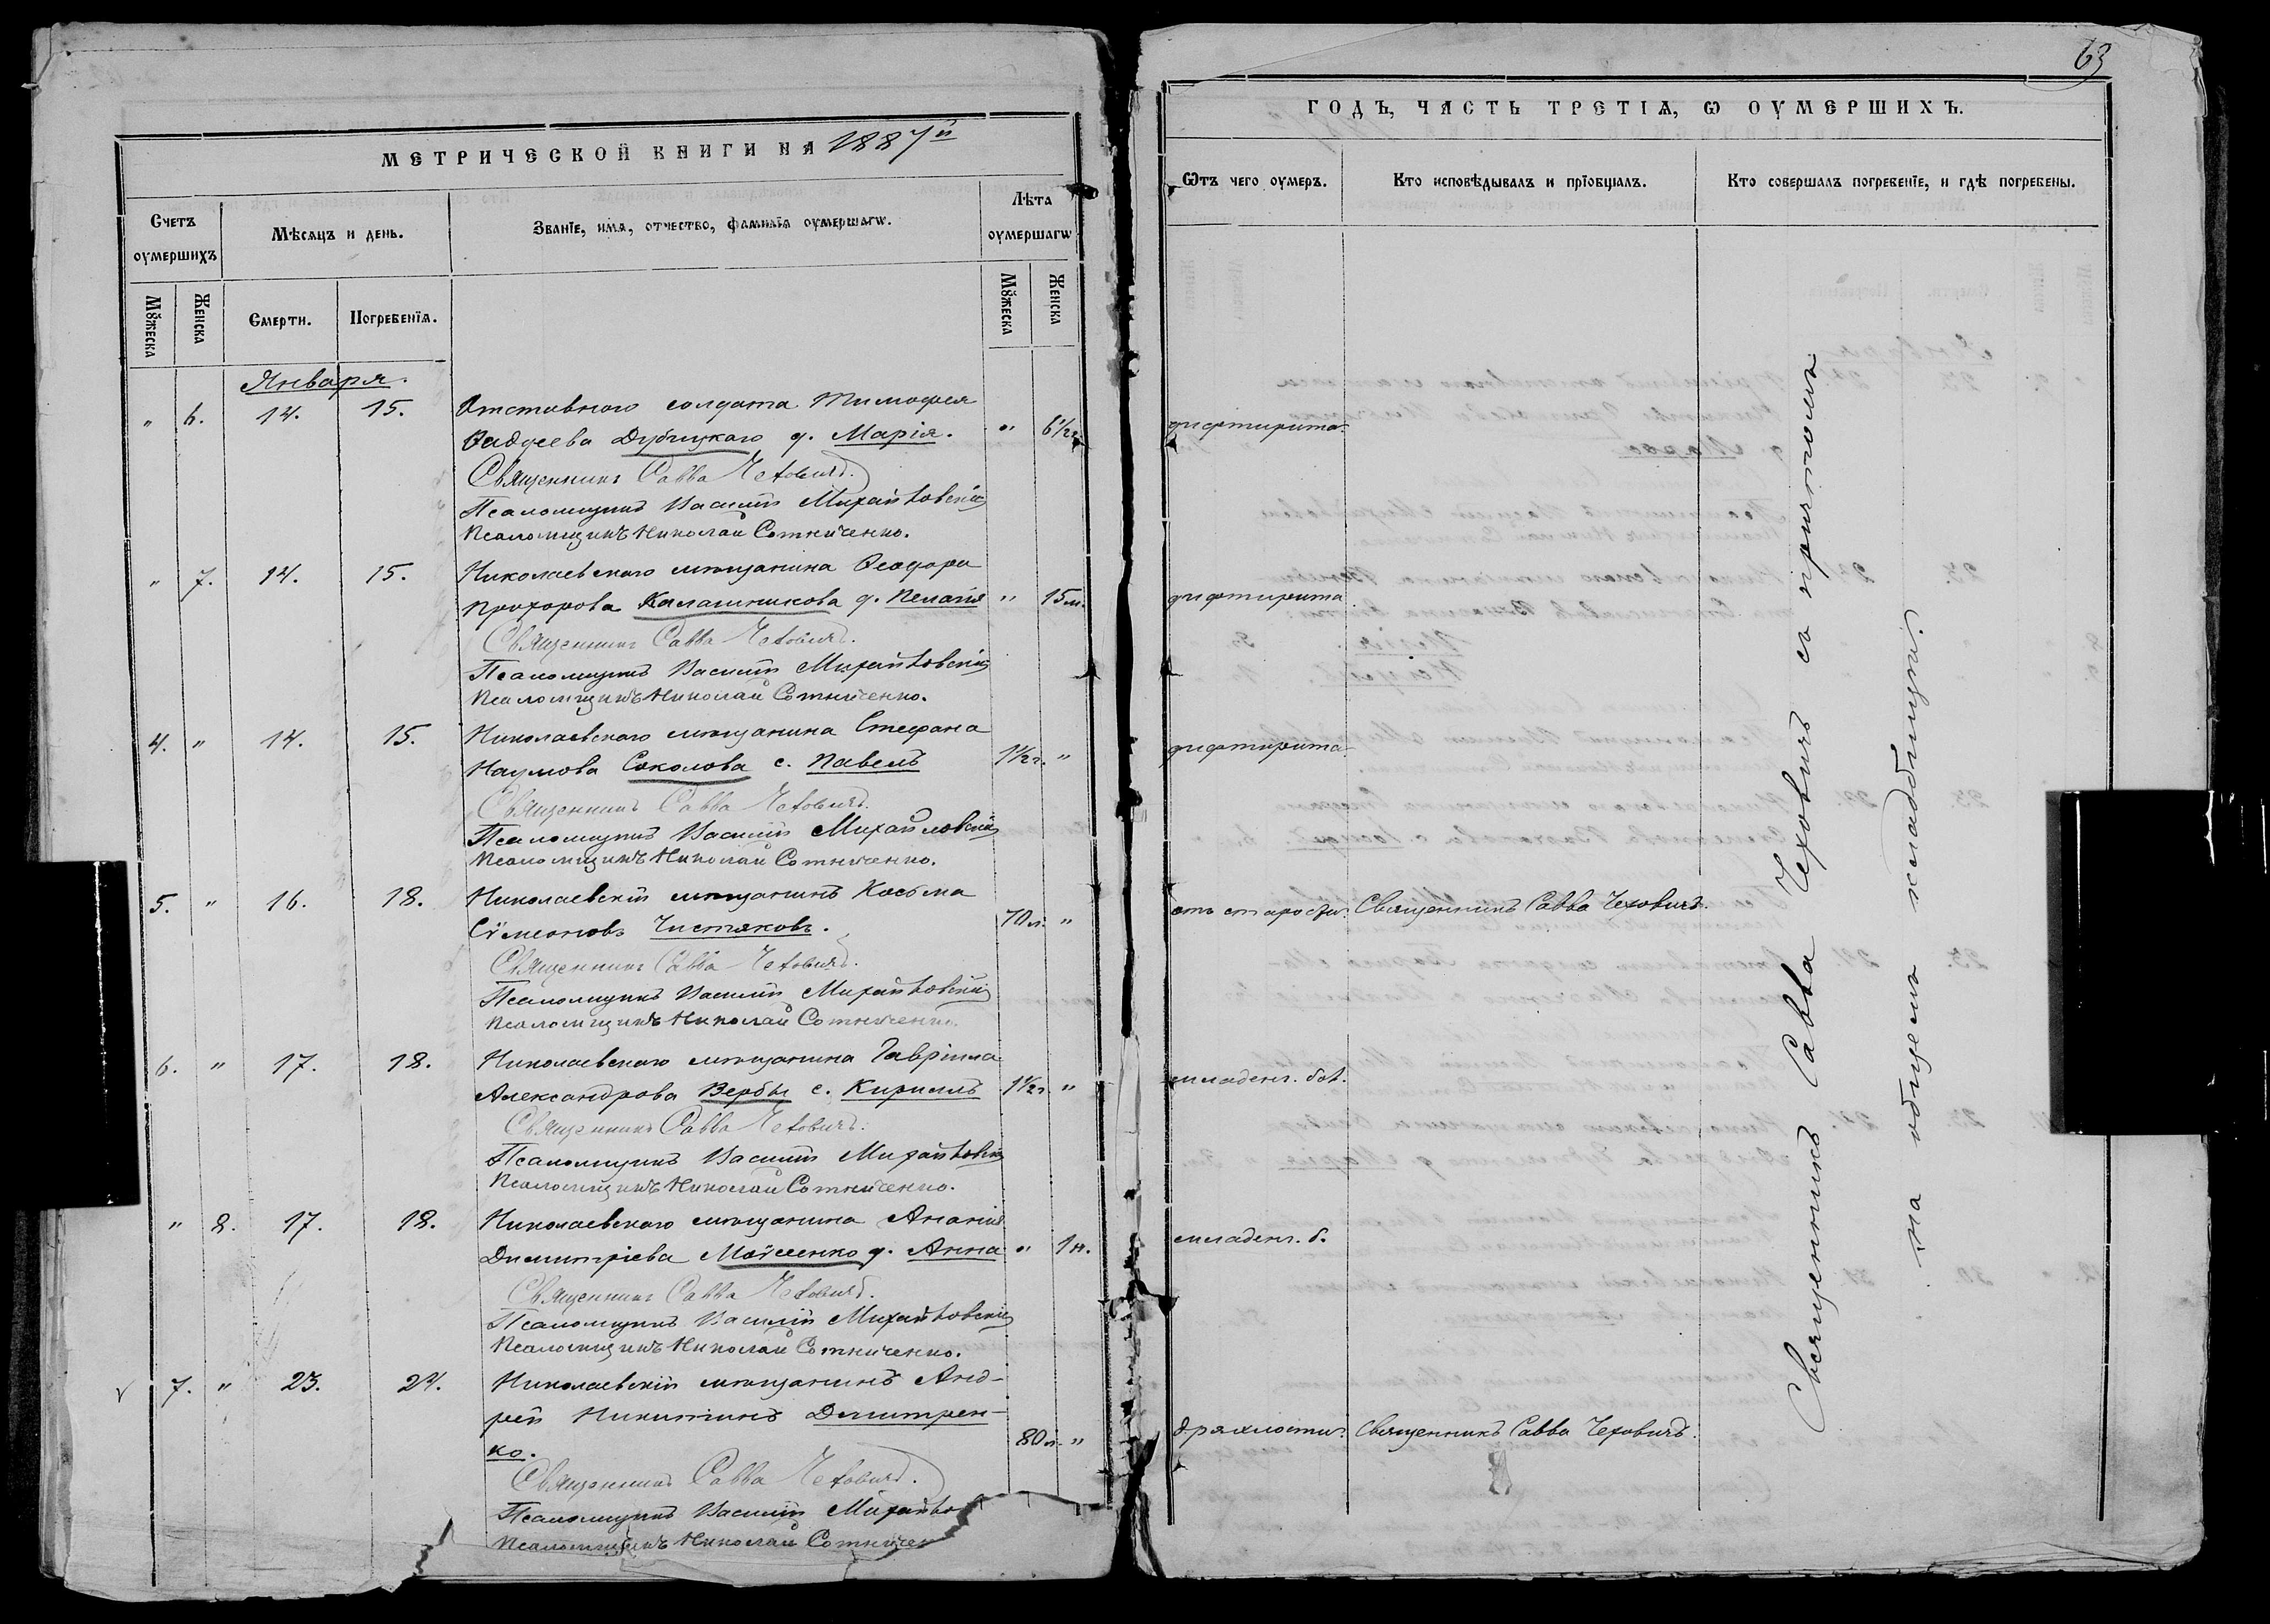 МЕТРИЧЕСКОЙ КНИГИ НА 1887й
Счетъ оумершихъ
Мѣсяцъ и день.
Званїе, имя, отчество, фамилїя оумершагѡ.
Лѣта оумершагѡ
Мꙋжеска
Женска
Смерти.
Погребенїя.
Мꙋжеска
Женска
Января.
" 6. 14. 15. Отставного солдата Тимофея
Фаддеева Дубицкаго д. Марія. " 6½ г.
Священникъ Савва Чеховичъ.
Псаломщикъ Василій Михайловскій
Псаломщикъ Николай Сотниченко.
" 7. 14. 15. Николаевскаго мѣщанина Ѳеодора
Прохорова Калашникова д. Пелагія " 15 м.
Священникъ Савва Чеховичъ.
Псаломщикъ Василій Михайловскій
Псаломщикъ Николай Сотниченко.
4. " 14. 15. Николаевскаго мѣщанина Стефана
Наумова Соколова с. Павелъ 1½ г. "
Священникъ Савва Чеховичъ.
Псаломщикъ Василій Михайловскій
Псаломщикъ Николай Сотниченко.
5. " 16. 18. Николаевскій мѣщанинъ Косьма
Сѵмеоновъ Чистяковъ. 70 л. "
Священникъ Савва Чеховичъ.
Псаломщикъ Василій Михайловскій
Псаломщикъ Николай Сотниченко.
6. " 17. 18. Николаевскаго мѣщанина Гавріила
Александрова Вербы с. Кириллъ 1½ г. "
Священникъ Савва Чеховичъ.
Псаломщикъ Василій Михайловскій
Псаломщикъ Николай Сотниченко.
" 8. 17. 18. Николаевскаго мѣщанина Ананія
Димитріева Мойсеенко д. Анна " 1 н.
Священникъ Савва Чеховичъ.
Псаломщикъ Василій Михайловскій
Псаломщикъ Николай Сотниченко.
7. " 23. 24. Николаевскій мѣщанинъ Анд-
рей Никитинъ Дмитрен-
ко. 80 л. "
Священникъ Савва Чеховичъ.
Псаломщикъ Василій Михайло
Псаломщикъ Николай Сотничен
63
ГОДЪ, ЧАСТЬ ТРЕТІѦ, Ѡ ОУМЕРШИХЪ.
Ѿтъ чего оумеръ.
Кто исповѣдывалъ и прїобщалъ.
Кто совершалъ погребенїе, и гдѣ погребены.
дифтирита.
дифтирита
дифтирита
отъ старости. Священникъ Савва Чеховичъ.
младенч. бол.
младенч. б.
дряхлости. Священникъ Савва Чеховичъ.
Священникъ Савва Чеховичъ съ причтомъ
на общемъ кладбищи.